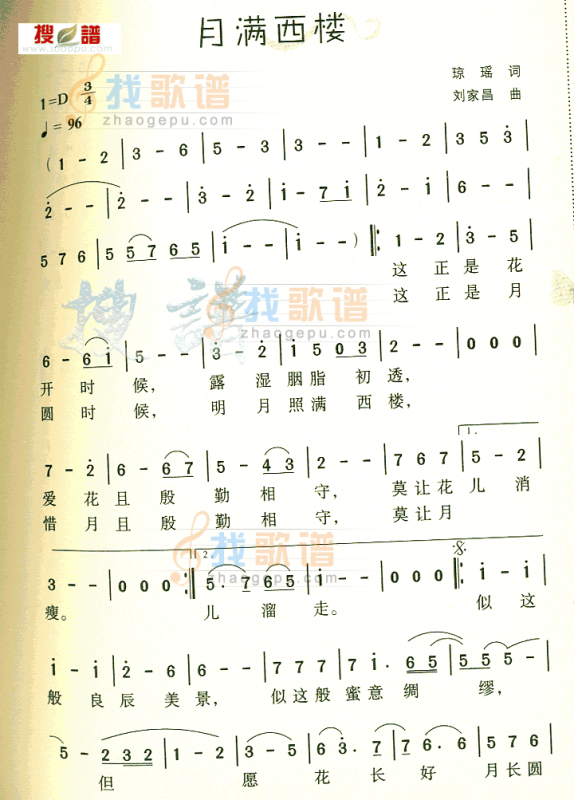 搜谱
www.sooopu.com
月满西楼
琼瑶 词
刘家昌 曲
1=D 3/4
♩=96
找歌谱
zhaogepu.com
( 1 - 2 | 3 - 6 | 5 - 3 | 3 - - | 1 - 2 | 3 5 3 |
2 - - | 2 - - | 3 - 2 | 1 - 7 1 | 2 - 2 | 6 - - |
5 7 6 | 5 5 7 6 5 | 1 - - | 1 - - ) ‖: 1 - 2 | 3 - 5 |
这 正 是 花
这 正 是 月
搜谱
找歌谱
zhaogepu.com
6 - 6 1 | 5 - - | 3 - 2 | 1 5 0 3 | 2 - - | 0 0 0 |
开 时 候， 露 湿 胭 脂 初 透，
圆 时 候， 明 月 照 满 西 楼，
1.
7 - 2 | 6 - 6 7 | 5 - 4 3 | 2 - - | 7 6 7 | 5 - 2 |
爱 花 且 殷 勤 相 守， 莫 让 花 儿 消
惜 月 且 殷 勤 相 守， 莫 让 月
找歌谱
zhaogepu.com
2.
3 - - | 0 0 0 :‖ 5 . 7 6 5 | 1 - - | 0 0 0 ‖: 1 - 1 |
瘦。 儿 溜 走。 似 这
1 - 1 | 2 - 6 | 6 - - | 7 7 7 | 7 1 . 6 5 | 5 5 5 - |
般 良 辰 美 景， 似 这 般 蜜 意 绸 缪，
5 - 2 3 2 | 1 - 2 | 5 - 5 | 6 3 . 7 | 7 6 . 6 | 5 7 6 |
但 愿 花 长 好 月 长 圆